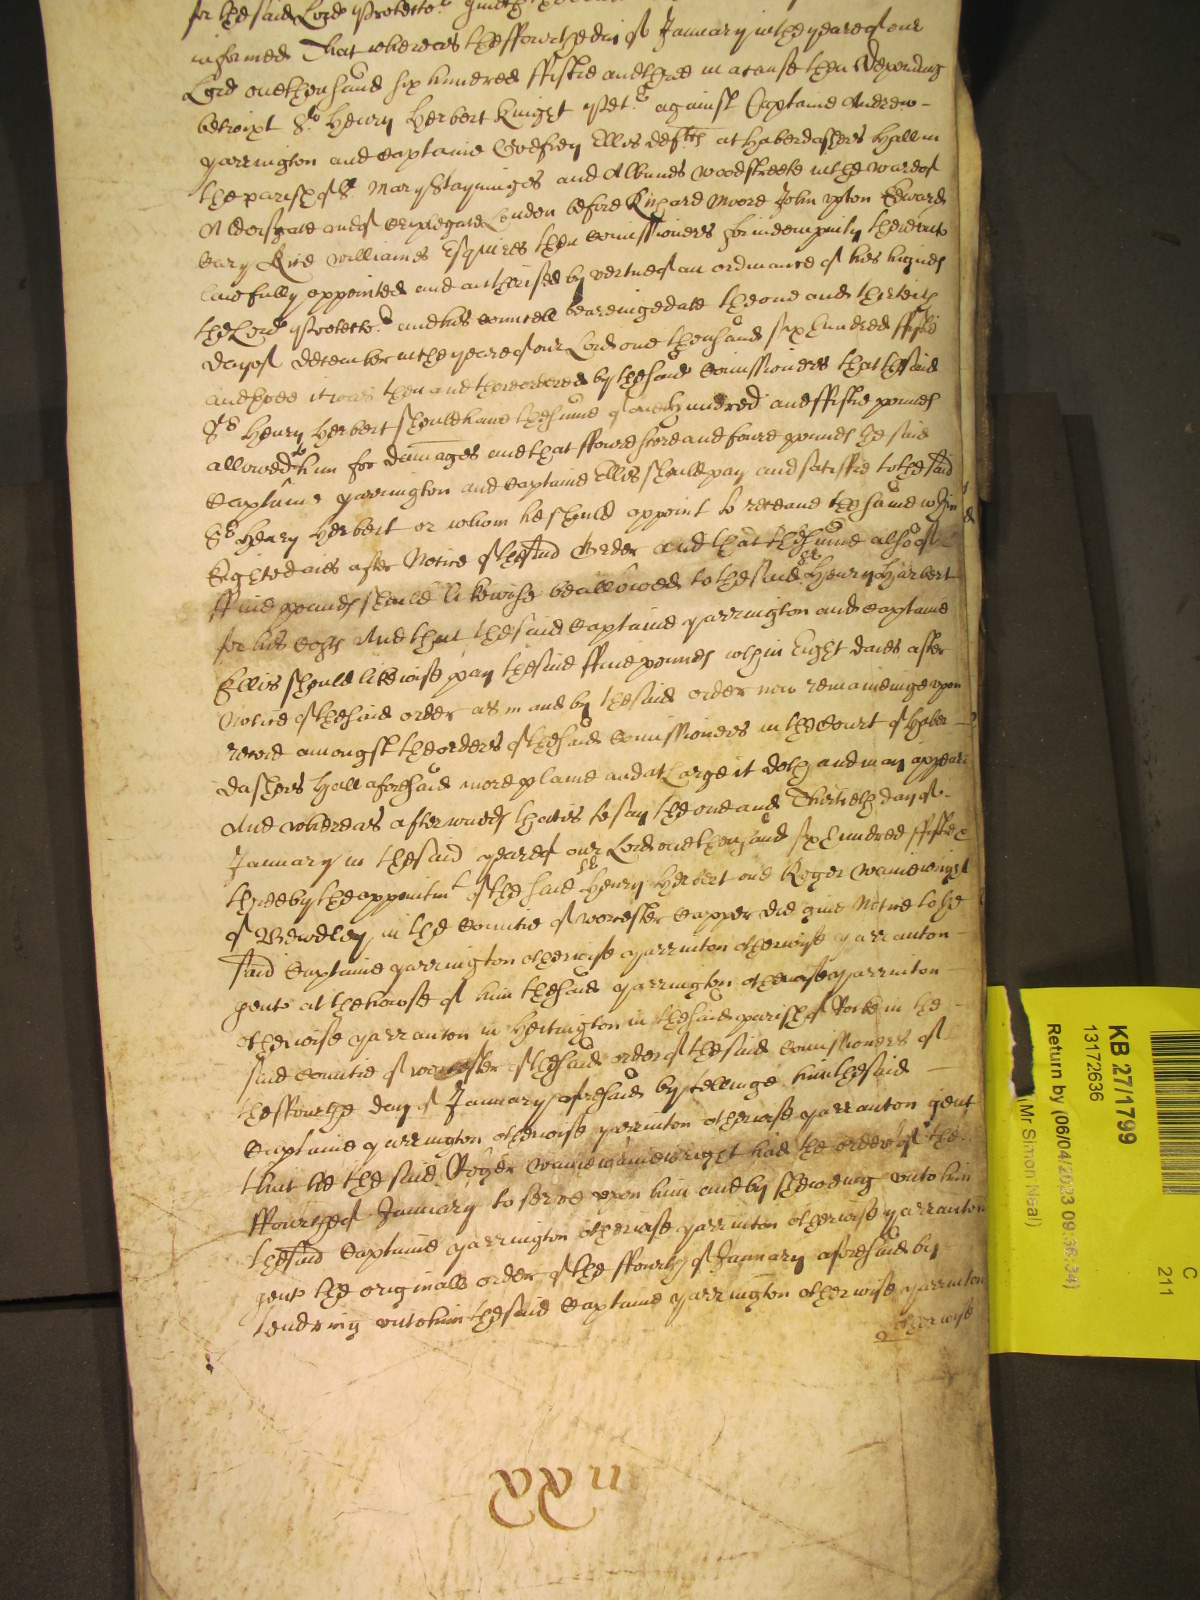 for the said Lord Protector
informed That whereas the ffourth day of January in the yeare of our
Lord one thousand six hundred fiftie and three in a cause then depending
betwixt Sr Henry Herbert Knight plet. against Captaine Andrew
yarrington and Captaine Godfrey Ellis defts at Haberdashers Hall in
the parish of St Mary Stayninges and Albanes woodstreete in the ward of
Aldersgate and of Criplegate London before Richard Moore John upton Edward
Cary Rice williames Esquires then Comissioners for indempnity thereunto
lawfully appointed and authorised by vertue of an ordinance of his highnes
the Lord Protector and his Councell beareinge date the one and thirtith
day of December in the yeare of our Lord one thousand six hundred ffiftie
and three it was then and there ordered by the said Comissioners that the said
Sr Henry Herbert should have the sume of one hundred and ffiftie pounds
allowed to him for damages and that ffoure score and foure pounds the said
Captaine yarrington and Captaine Ellis should pay and satisfie to the said
Sr Henry Herbert or whom he should appoint to receave the same wthin
Eight daies after Notice of the said Order and that the sume also of
ffive pounds should likewise be allowed to the said Sr Henry Harbert
for his costs And that the said Captaine yarrington and Captaine
Ellis should likewise pay the said ffive pounds wthin Eight daies after
Notice of the said order as in and by the said order now remaineinge upon
record amongst the orders of the said Comissioners in the Court of Haber
dashers Hall aforesaid more plaine and at Large it doth and may appeare
And whereas afterwards that is to say the one and Thirtieth day of
January in the said yeare of our Lord one thousand six hundred ffiftie
three by the appointmt of the said Sr Henry Herbert one Roger
of Bewdley in the Countie of worcester Capper did give Notice to the
said Captaine yarrington otherwise yarrinton otherwise yarranton
gent at the house of him the said yarrington otherwise yarrinton
otherwise yarranton in in the said parish of Rocke in the
said Countie of worcester of the said order of the said Comissioners of
the ffourthe day of January aforesaid by tellinge him the said
Captaine yarrington otherwise yarrinton otherwise yarranton gent
that he the said Roger had the order of the
ffourth of January to serve upon him and by shewing unto him
the said Captaine yarrington otherwise yarrinton otherwise yarranton
gent the originall order of the ffourth of January aforesaid by
tendring unto him the said Captaine yarrington otherwise yarrinton
otherwise
KB 27/1799
13172636
Return by (06/04/2023 09:36:34)
(Mr Simon Neal)
C
211